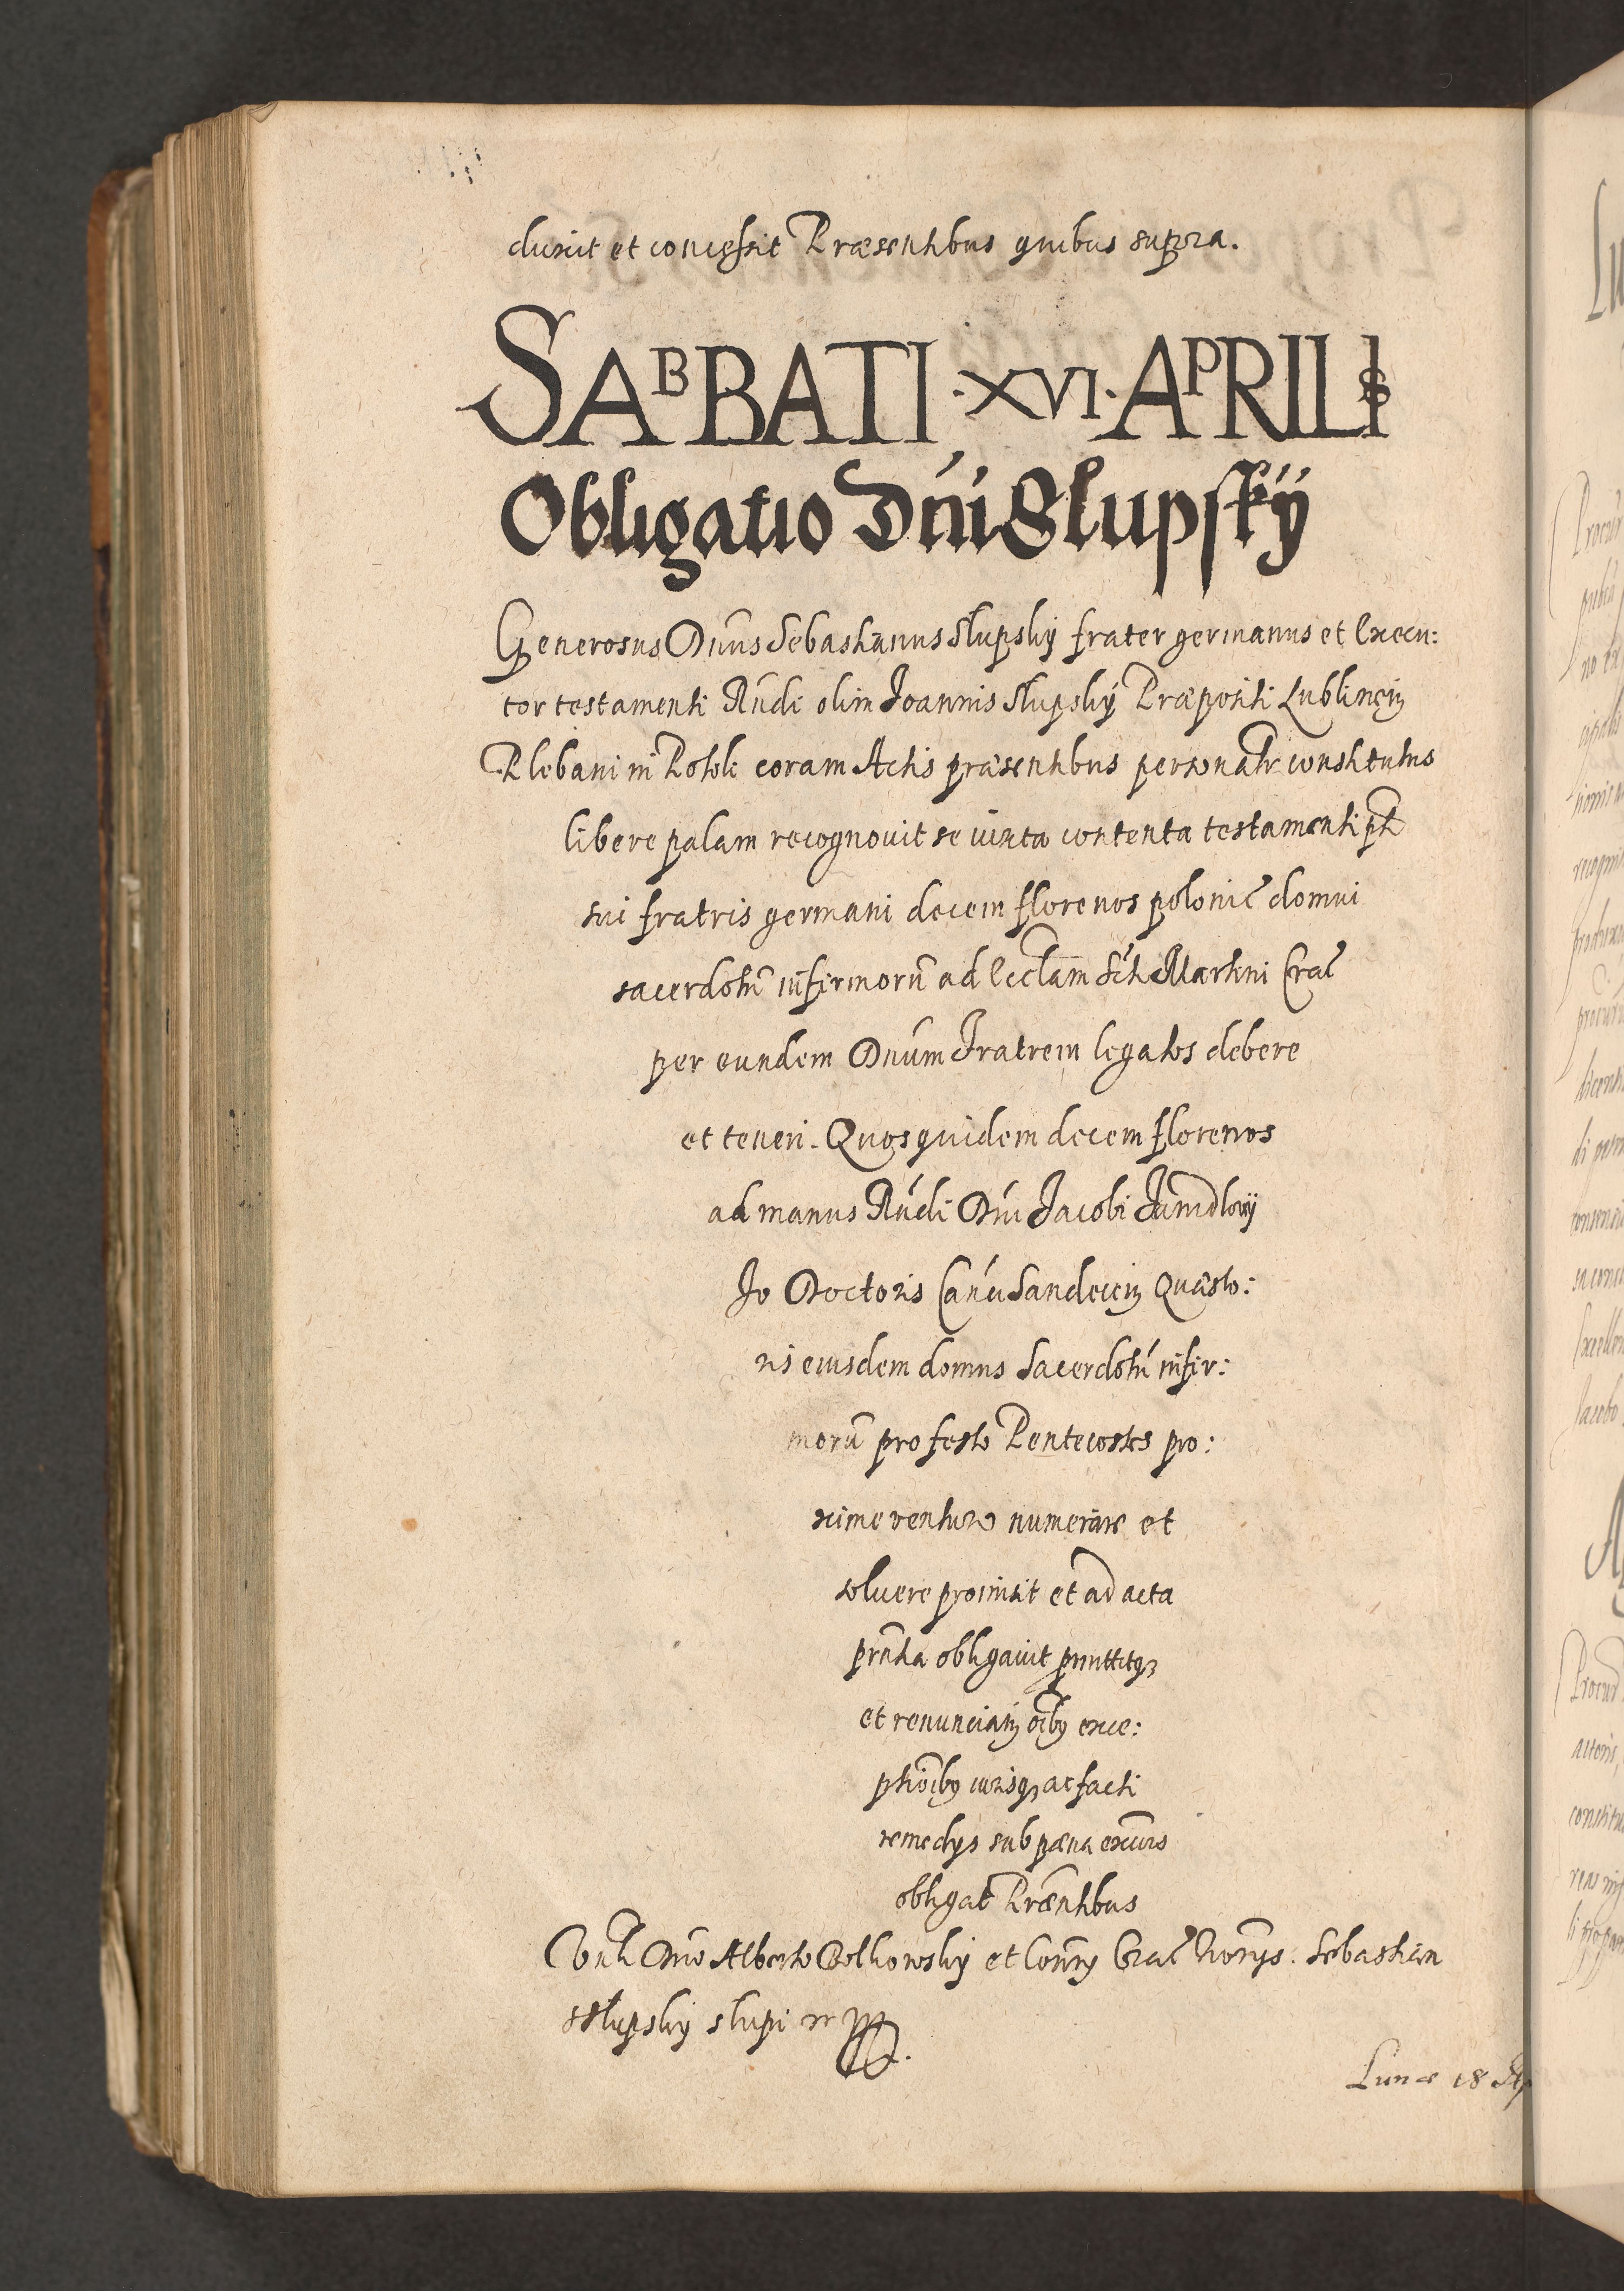 duxit et concessit Præsentibus quibus supra.
SABBATI ·XVI· APRILIS
Obligatio Dńi Slupskÿ
Generosus Dn̄us Sebastianus Slupskÿ frater germanus et Execu:
tor testamenti Rńdi olim Joannis Slupskÿ Præpositi Lublineñ
Plebani in Potok coram Actis præsentibus personalr̃ constitutus
libere palam recognovit se iuxta contenta testamenti pt̃i
sui fratris germani decem florenos polonic̃ domui
sacerdotũ infirmorũ ad Eccl̃am Sc̃ti Martini Crac̃
per eundem Dnúm Fratrem legatos debere
et teneri. Quos quidem decem florenos
ad manus Rńdi Dńi Jacobi
Jo Doctoris Canći Sandecen̄ Quæsto:
ris eiusdem domus Sacerdotú infir:
morũ pro festo Pentecostes pro:
xime venturo numerare et
solvere promisit et ad acta
prñtia obligavit promittitq₃
et renunciat oĩbꝫ exce:
ptiõibꝫ iurisq₃ ac facti
remedys sub pæna excũis
obligat̃ Præñtibus
Alberto et Crac̃ Notr̃ys. Sebastian
Slupskÿ slupi mp.
Lunæ 18 Ap